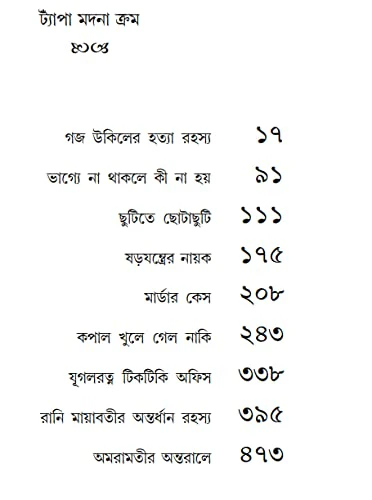 ট্যাঁপা মদনা ক্রম
গজ উকিলের হত্যা রহস্য ১৭
ভাগ্যে না থাকলে কী না হয় ৯১
ছুটিতে ছোটাছুটি ১১১
ষড়যন্ত্রের নায়ক ১৭৫
মার্ডার কেস ২০৮
কপাল খুলে গেল নাকি ২৪৩
যূগলরত্ন টিকটিকি অফিস ৩৩৮
রানি মায়াবতীর অন্তর্ধান রহস্য ৩৯৫
অমরামতীর অন্তরালে ৪৭৩